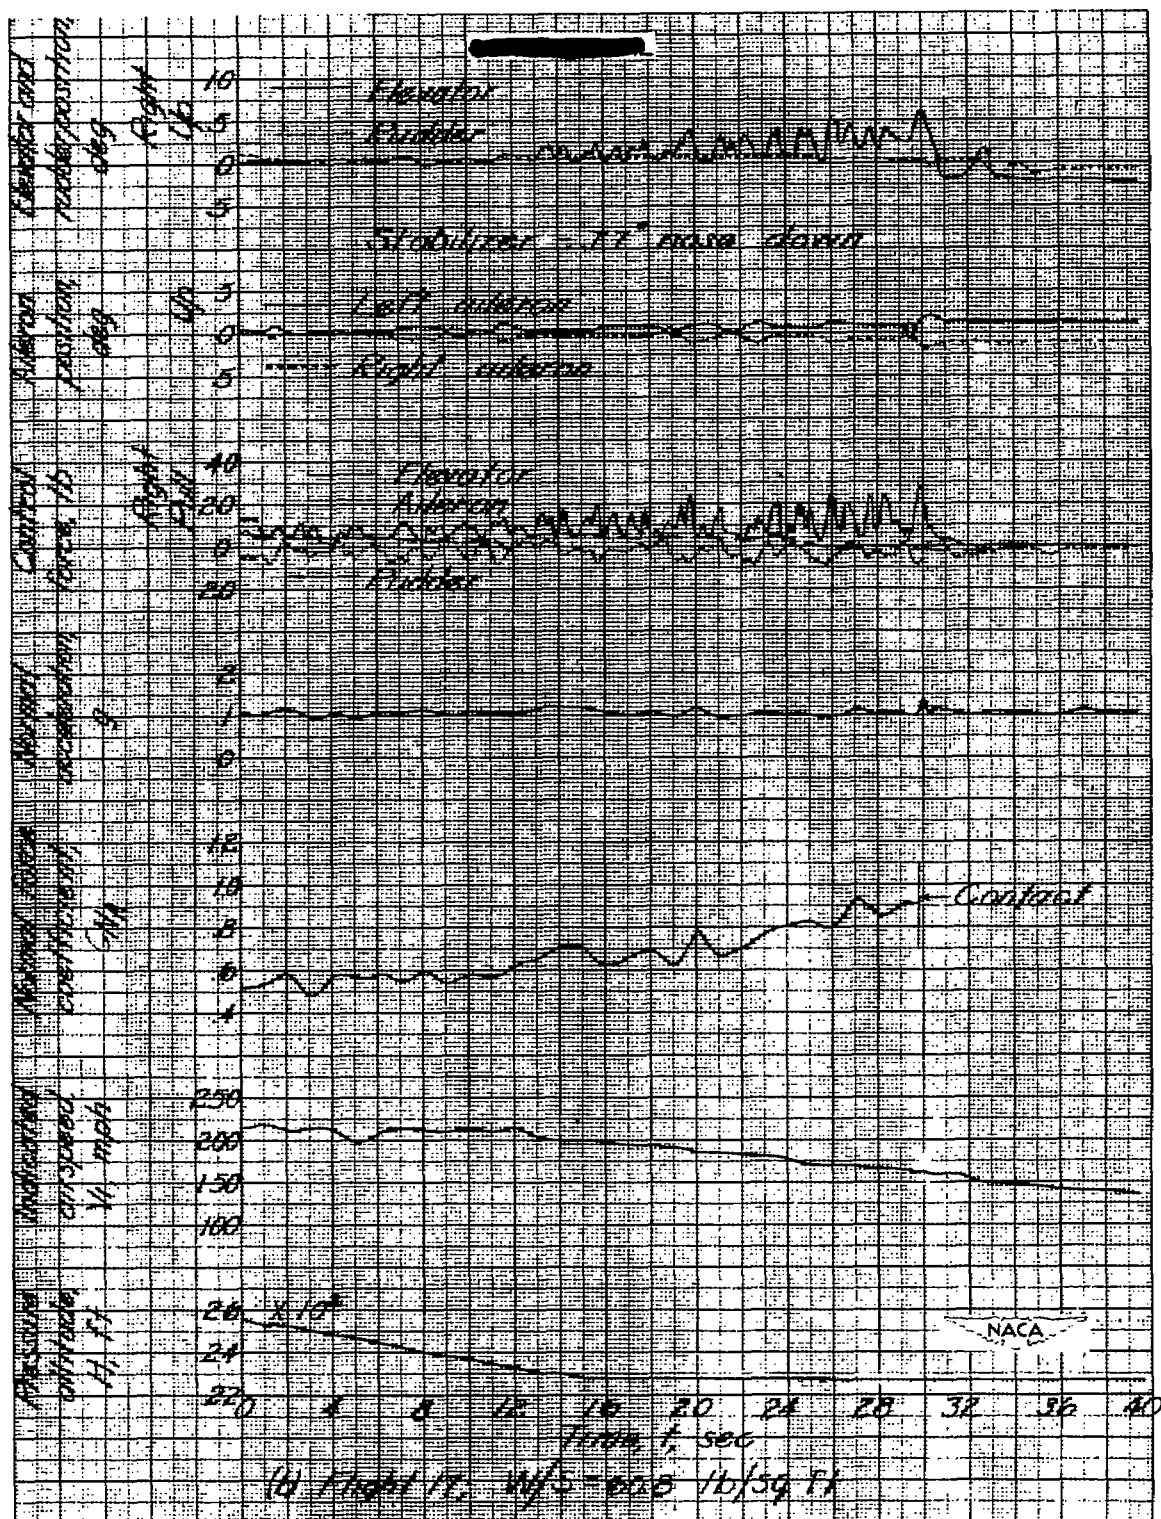 Elevator and
rudder position,
deg
Right
Up
10
5
0
5
Elevator
Rudder
Stabilizer nose down
Aileron
position,
deg
Up
5
0
5
Left aileron
Right aileron
Control
force, lb
Right
Pull
40
20
0
20
Elevator
Aileron
Rudder
Normal
acceleration,
g
2
1
0
Normal force
coefficient,
CNA
1.2
1.0
.8
.6
.4
Contact
Indicated
airspeed,
Vi, mph
250
200
150
100
Pressure
altitude,
H, ft
26
24
22
0 4 8 12 16 20 24 28 32 36 40
Time, t, sec
NACA
Flight W/S = lb/sq ft